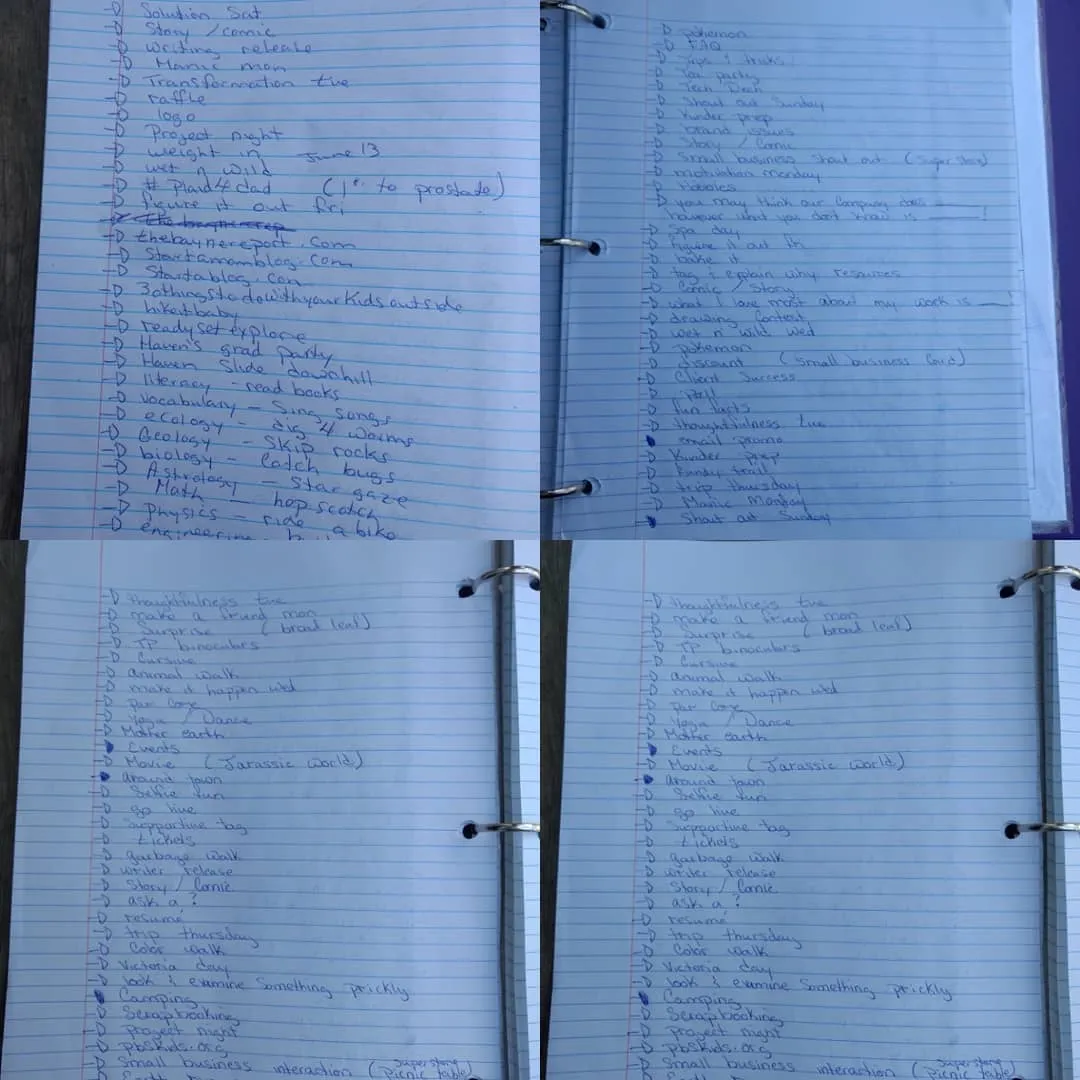 Solution Sat
Story / comic
writing release
Manic mon
Transformation tue
raffle
logo
Project night
weight in June 13
wet n wild
# Plaid4dad (1st to prostade)
figure it out fri
thebaynereport.com
Startamomblog.com
Startablog.com
30thingstodowithyourkidsoutside
hikeitbaby
readysetexplore
Haven's grad party
Haven Slide downhill
literacy - read books
vocabulary - Sing songs
ecology - dig 4 worms
Geology - Skip rocks
biology - Catch bugs
Astrology - Star gaze
Math - hop scotch
Physics - ride a bike
engineering
pokemon
FAQ
Tips & tricks
Tea party
Tech Deck
Shout out Sunday
Kinder prep
brand issues
Story / Comic
Small business Shout out (Super Store)
motivation monday
Hobbies
you may think our Company does ____
however what you don't know is ____!
Spa day
figure it out fri
bake it
tag & explain why resources
Comic / Story
what I love most about my work is ____
drawing Contest
wet n' wild wed
pokemon
discount (Small business Card)
Client Success
poll
fun facts
thoughtfulness tue
email promo
Kinder prep
Fundy trail
trip thursday
Manic Monday
Shout out Sunday
thoughtfulness tue
make a friend mon
Surprise (broad leaf)
TP binoculars
Cursive
animal walk
make it happen wed
par Core
Yoga / Dance
Mother earth
Events
Movie (Jarassic world)
around town
Selfie fun
go live
Supportive tag
tickets
garbage walk
writer release
Story / Comic
ask a ?
resumé
trip thursday
Color walk
Victoria day
look & examine Something prickly
Camping
Scrapbooking
project night
pbskids.org
Small business interaction (Superstore picnic table)
thoughtfulness tue
make a friend mon
Surprise (broad leaf)
TP binoculars
Cursive
animal walk
make it happen wed
par Core
Yoga / Dance
Mother earth
Events
Movie (Jarassic world)
around town
Selfie fun
go live
Supportive tag
tickets
garbage walk
writer release
Story / Comic
ask a ?
resumé
trip thursday
Color walk
Victoria day
look & examine Something prickly
Camping
Scrapbooking
project night
pbskids.org
Small business interaction (Superstore picnic table)